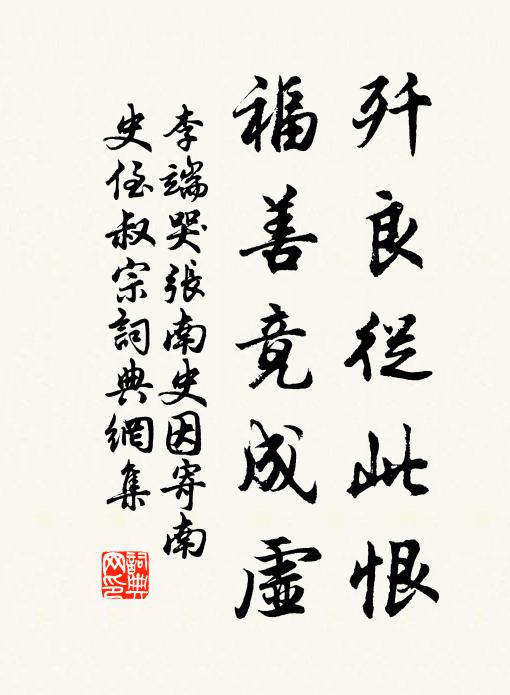 歼良從此恨
福善竟成虛
李端哭張南史因寄南
史侄叔宗詞典網集
詞典
网印